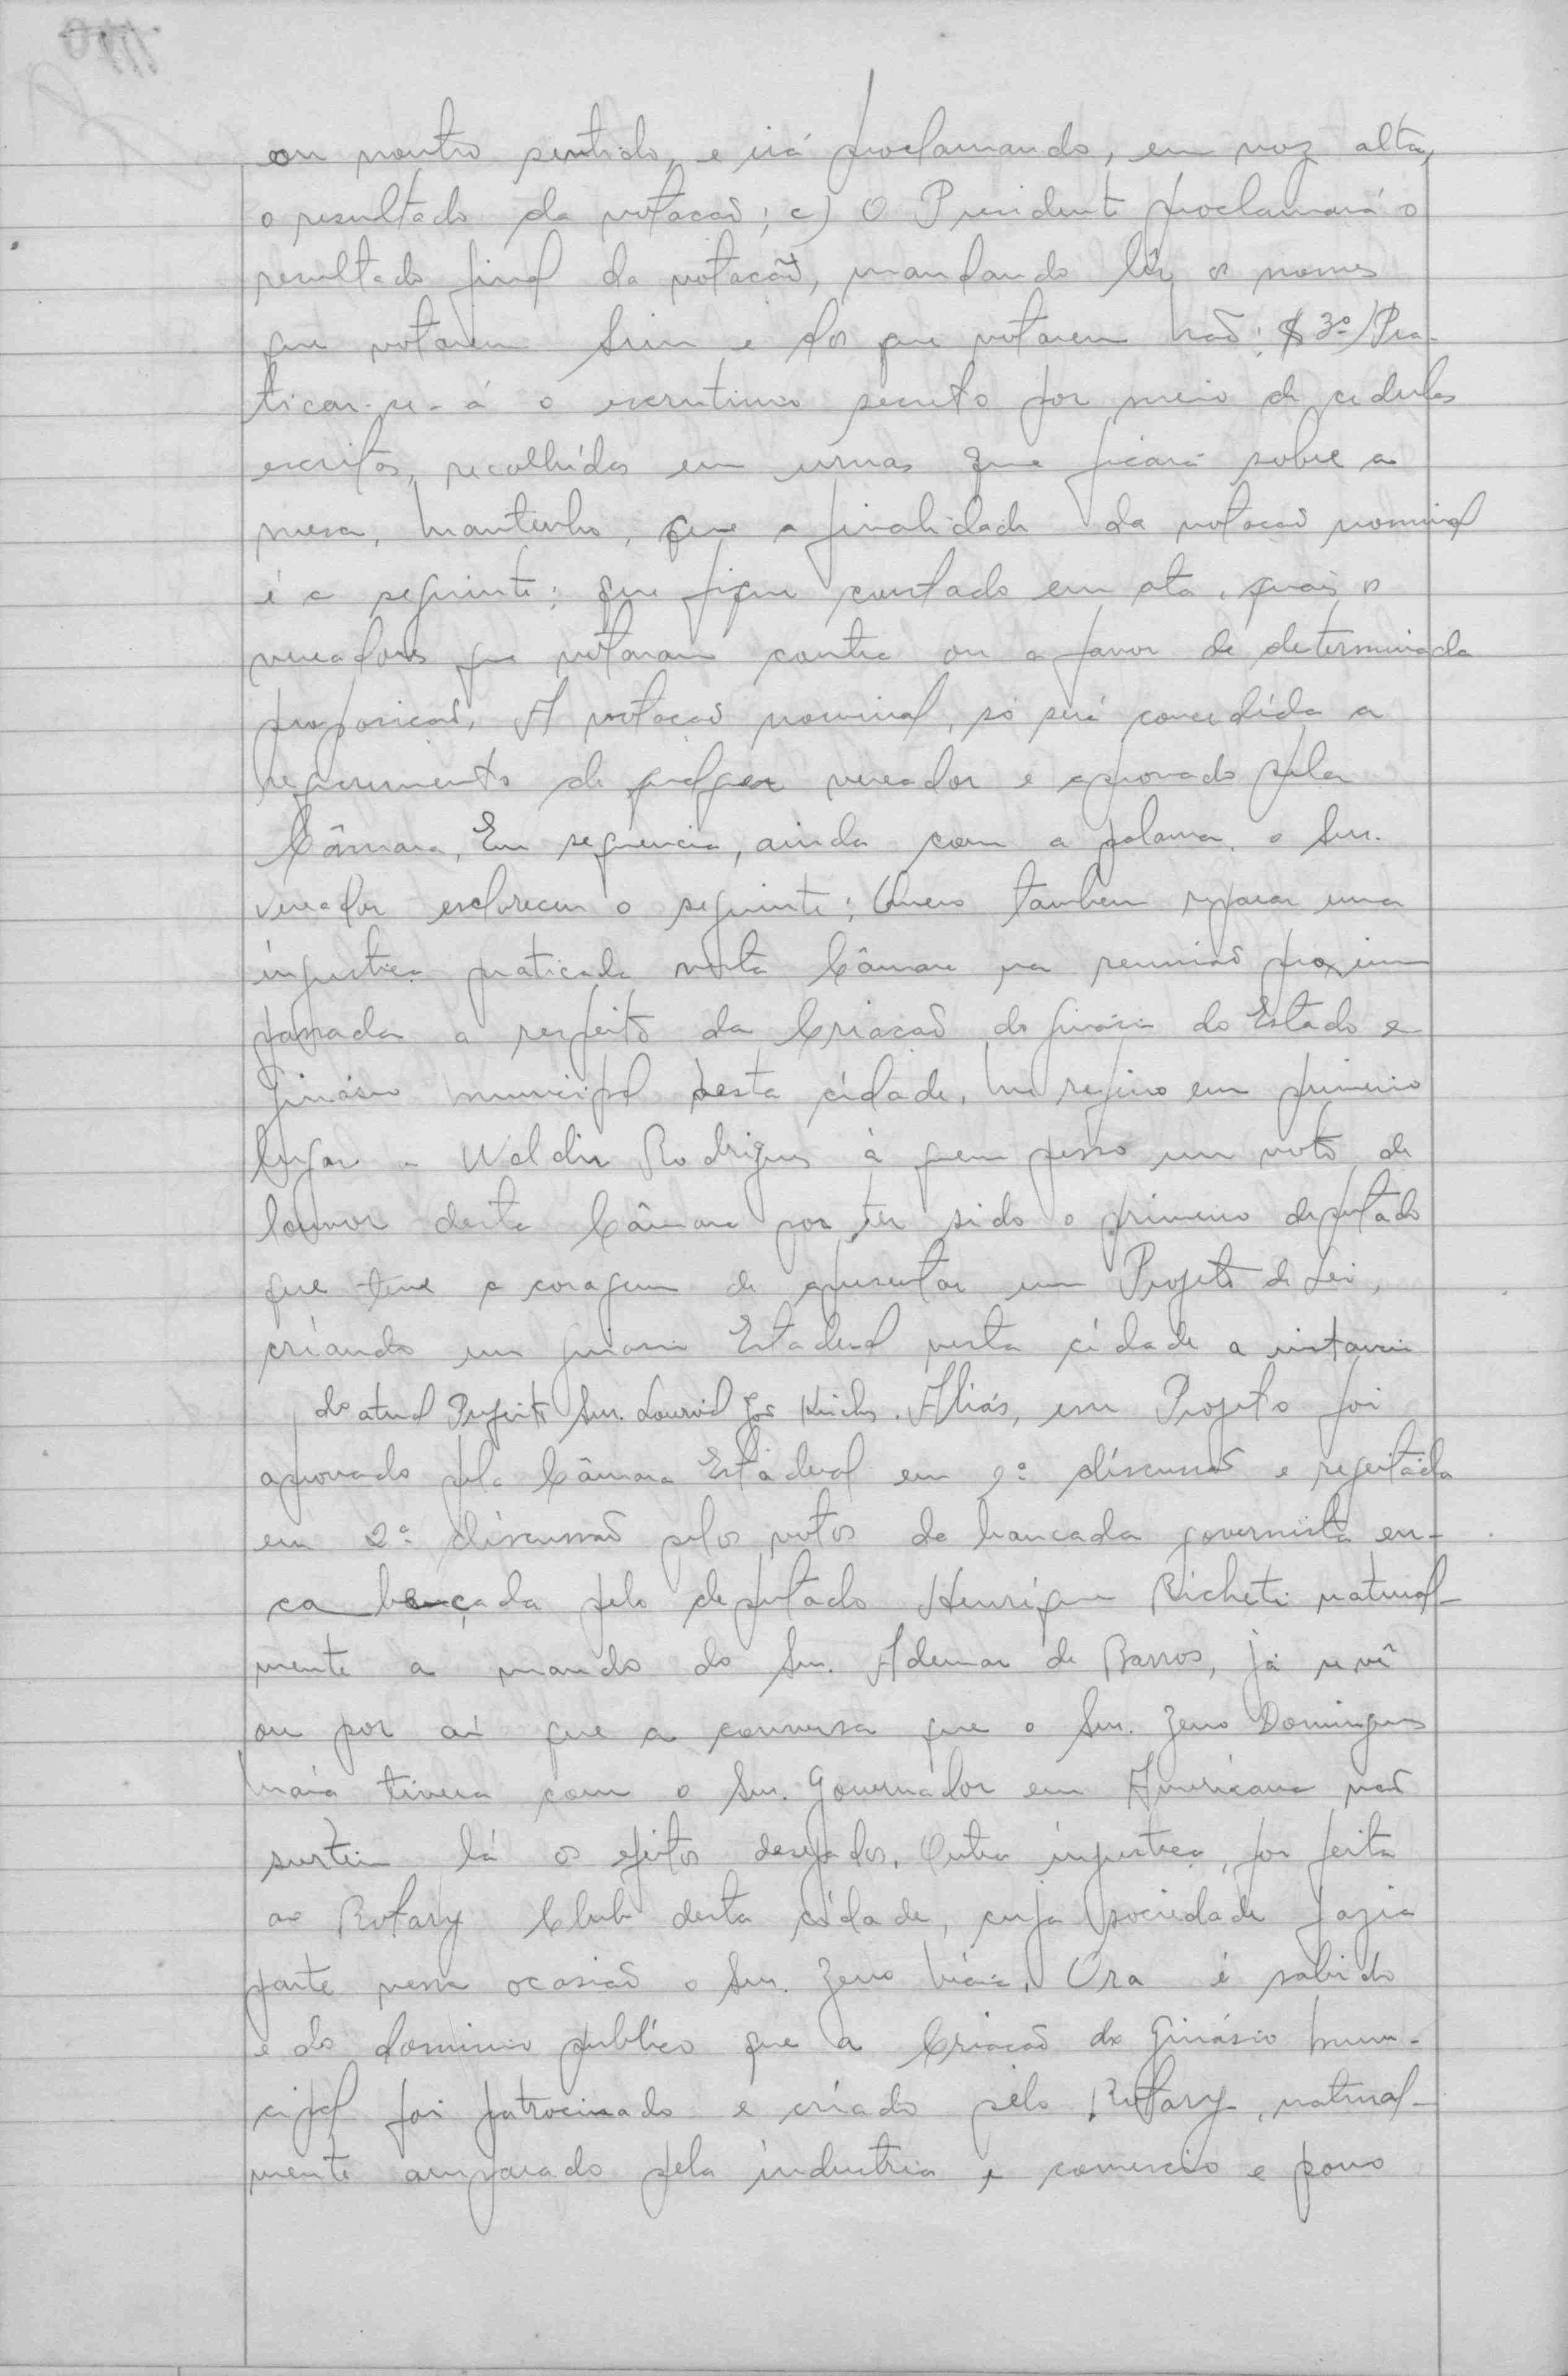 ou noutro sentido, e irá proclamando, em voz alta,
o resultado da votacaõ; c) O Presidente proclamará o
resultado final da votacaõ, mandando lêr os nomes
que votarem Sim e dos que votarem Naõ; § 3º) Pra-
ticar-se-á o escrutinio secreto por meio de cedulas
escritas, recolhidas em urnas que ficará sobre a
mesa, Mantenho, que a finalidade da votacaõ nominal
é a seguinte: que fique constado em ata, quais os
vereadores que votaram contra ou a favor de determinada
proposicaõ. A votacaõ nominal, só será concedída a
requerimento de qualquer vereador e aprovado pela
Câmara, Em sequencia, ainda com a palavra, o Snr.
vereador esclareceu o seguinte: Quero tambem reparar uma
injustiça praticada nesta Câmara na reuniaõ proxima
passada a respeito da Criacaõ do ginásio do Estado e
Ginásio Municipal desta cídade, Me refiro em primeiro
lugar a Waldir Rodrigues à quem pesso um voto de
louvor desta Câmara por ter sido o primeiro deputado
que teve a coragem de apresentar um Projeto de Lei,
criando um ginasio Estadual nesta cídade a instancia
do atual Prefeito Snr. Lourival José. Aliás, esse Projeto foi
aprovado pela Câmara Estadual em 1ª discussaõ e regeitada
em 2ª discussaõ pelos votos da bancada governista en-
cabeçada pelo deputado Henrique Richeti natural-
mente a mando do Snr. Ademar de Barros, já se vê
ou por aí que a conversa que o Snr. Zeno Domingues
Maia tivera com o Snr. Governador em Americana naõ
surtiu lá os efeitos desejados. Outra injustiça, foi feita
ao Rotary Club desta cídade, cuja sociedade fazia
parte nessa ocasiaõ o Snr. Zeno Maia. Ora é sabido
e do dominio publíco que a Criacaõ do Ginásio Muni-
cipal foi patrocinado e criado pelo Rotary, natural-
mente amparado pela industria e comercio e povo